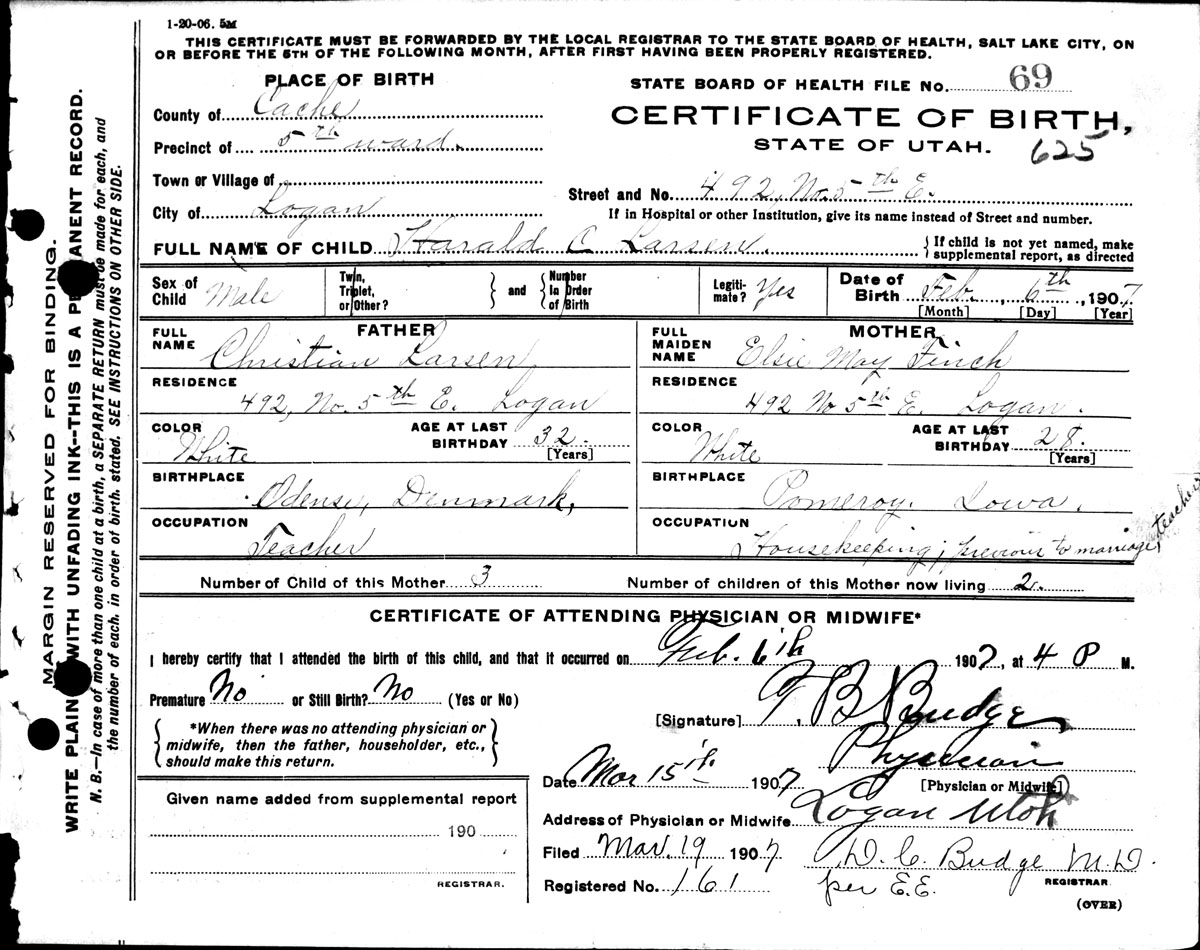 1-20-06. 5M
THIS CERTIFICATE MUST BE FORWARDED BY THE LOCAL REGISTRAR TO THE STATE BOARD OF HEALTH, SALT LAKE CITY, ON
OR BEFORE THE 5TH OF THE FOLLOWING MONTH, AFTER FIRST HAVING BEEN PROPERLY REGISTERED.
PLACE OF BIRTH
STATE BOARD OF HEALTH FILE No. 69
County of Cache
CERTIFICATE OF BIRTH,
Precinct of 5th ward.
STATE OF UTAH. 625
Town or Village of
Street and No. 492, No. 5th E.
City of Logan
If in Hospital or other Institution, give its name instead of Street and number.
FULL NAME OF CHILD Harald C Larsen. { If child is not yet named, make
supplemental report, as directed
Sex of Child Male
Twin, Triplet, or Other? } and { Number In Order of Birth
Legiti-mate? Yes
Date of Birth Feb. 6th, 1907
[Month] [Day] [Year]
FATHER
FULL NAME Christian Larsen
RESIDENCE
492, No. 5th E. Logan
COLOR White
AGE AT LAST BIRTHDAY 32. [Years]
BIRTHPLACE
Odense, Denmark,
OCCUPATION
Teacher
MOTHER
FULL MAIDEN NAME Elsie May Finch
RESIDENCE
492 No 5th E. Logan.
COLOR White
AGE AT LAST BIRTHDAY 28. [Years]
BIRTHPLACE
Pomeroy. Iowa.
OCCUPATION
Housekeeping; previous to marriage, teacher
Number of Child of this Mother 3
Number of children of this Mother now living 2.
CERTIFICATE OF ATTENDING PHYSICIAN OR MIDWIFE*
I hereby certify that I attended the birth of this child, and that it occurred on Feb. 6th 1907, at 4 P M.
Premature No or Still Birth? No (Yes or No)
[Signature] T. B Budge
{ *When there was no attending physician or
midwife, then the father, householder, etc.,
should make this return. }
Physician
Date Mar 15th 1907
[Physician or Midwife]
Given name added from supplemental report
190
REGISTRAR.
Address of Physician or Midwife Logan Utah
Filed Mar. 19 1907 D. C. Budge M.D.
Registered No. 161 per E.E. REGISTRAR
(OVER)
MARGIN RESERVED FOR BINDING.
WRITE PLAIN WITH UNFADING INK--THIS IS A PERMANENT RECORD.
N. B.—In case of more than one child at a birth, a SEPARATE RETURN must be made for each, and
the number of each, in order of birth, stated. SEE INSTRUCTIONS ON OTHER SIDE.